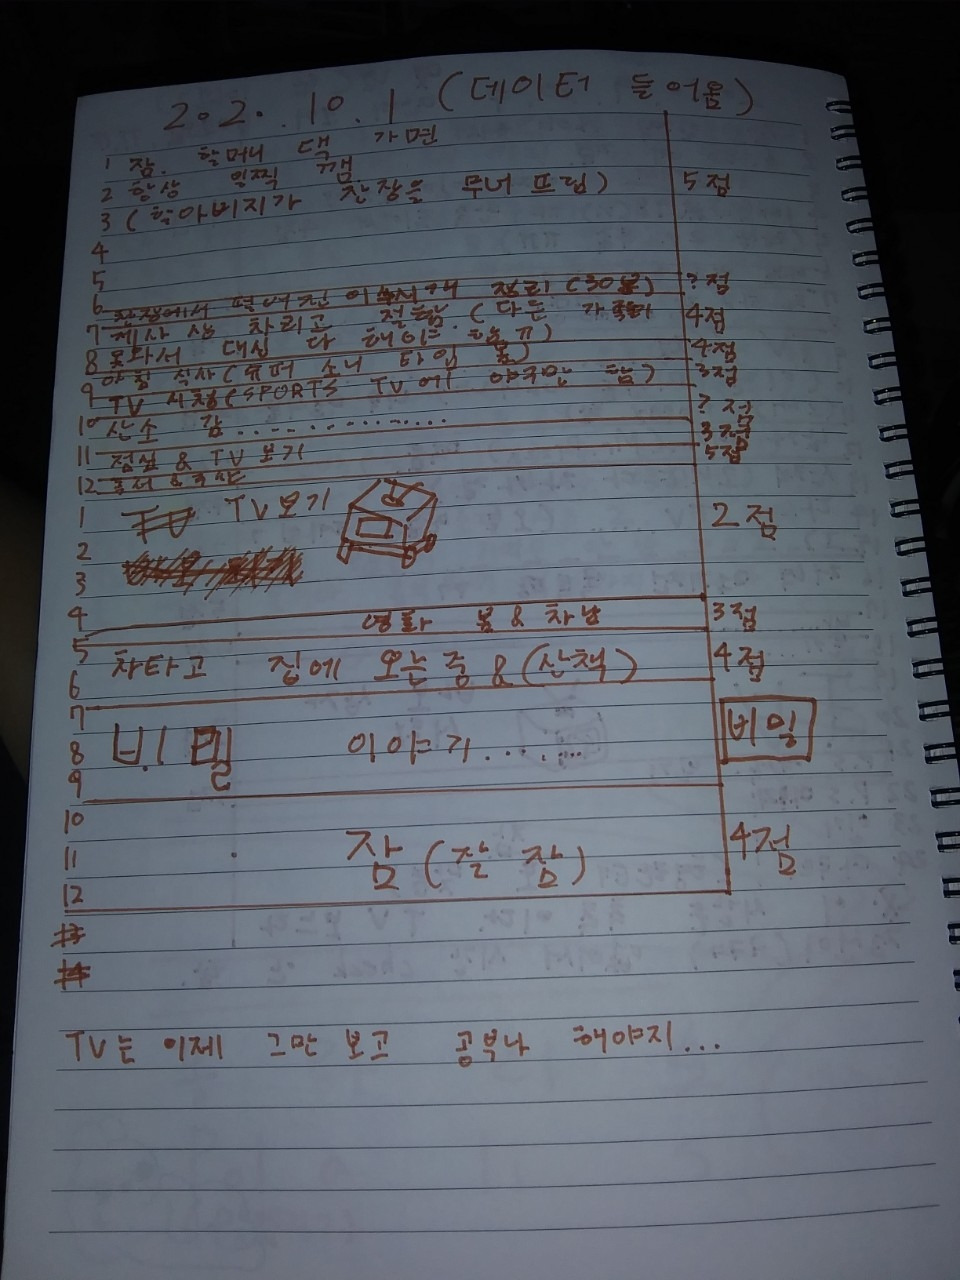 202. 10. 1 (데이터 들어옴)
1 잠. 할머니 댁 가면
2 항상 일찍 깸 5점
3 (할아버지가 찬장을 무너 뜨림)
4
5
6 찬장에서 떨어진 이쑤시개 정리 (30분) ?점
7 제사 상 차리고 절함. (다른 가족이 4점
8 못와서 대신 다 해야 함 ㅠ) 4점
9 아침 식사 (슈퍼 소니 타임 봄) 3점
TV 시청 (SPORTS TV에 야구만 함)
10 산소 감............... ?점
3점
11 점심 & TV 보기 5점
12 독서 &
1 TV TV보기 2점
2
3
4 영화 봄 & 차남 3점
5
5 차타고 집에 오는 중 & (산책) 4점
6
7
8 비밀 이야기...... 비밀
9
10
11 잠 (잘 잠) 4점
12
TV는 이제 그만 보고 공부나 해야지...